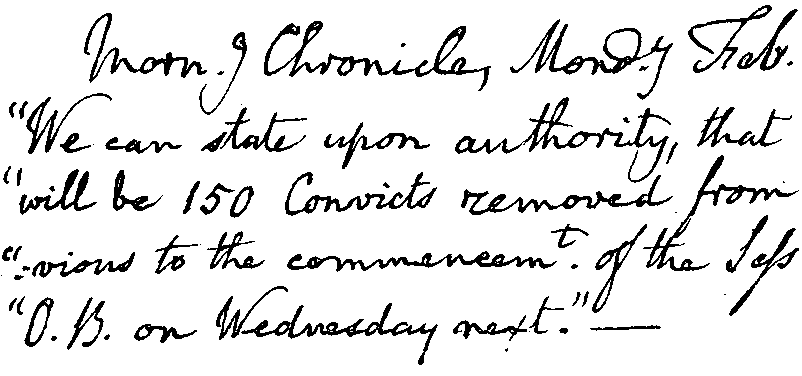 Morn.g Chronicle, Mond.y Feb.
"We can state upon authority, that
"will be 150 Convicts removed from
"-vious to the commencemt. of the Sess
"O. B. on Wednesday next." —